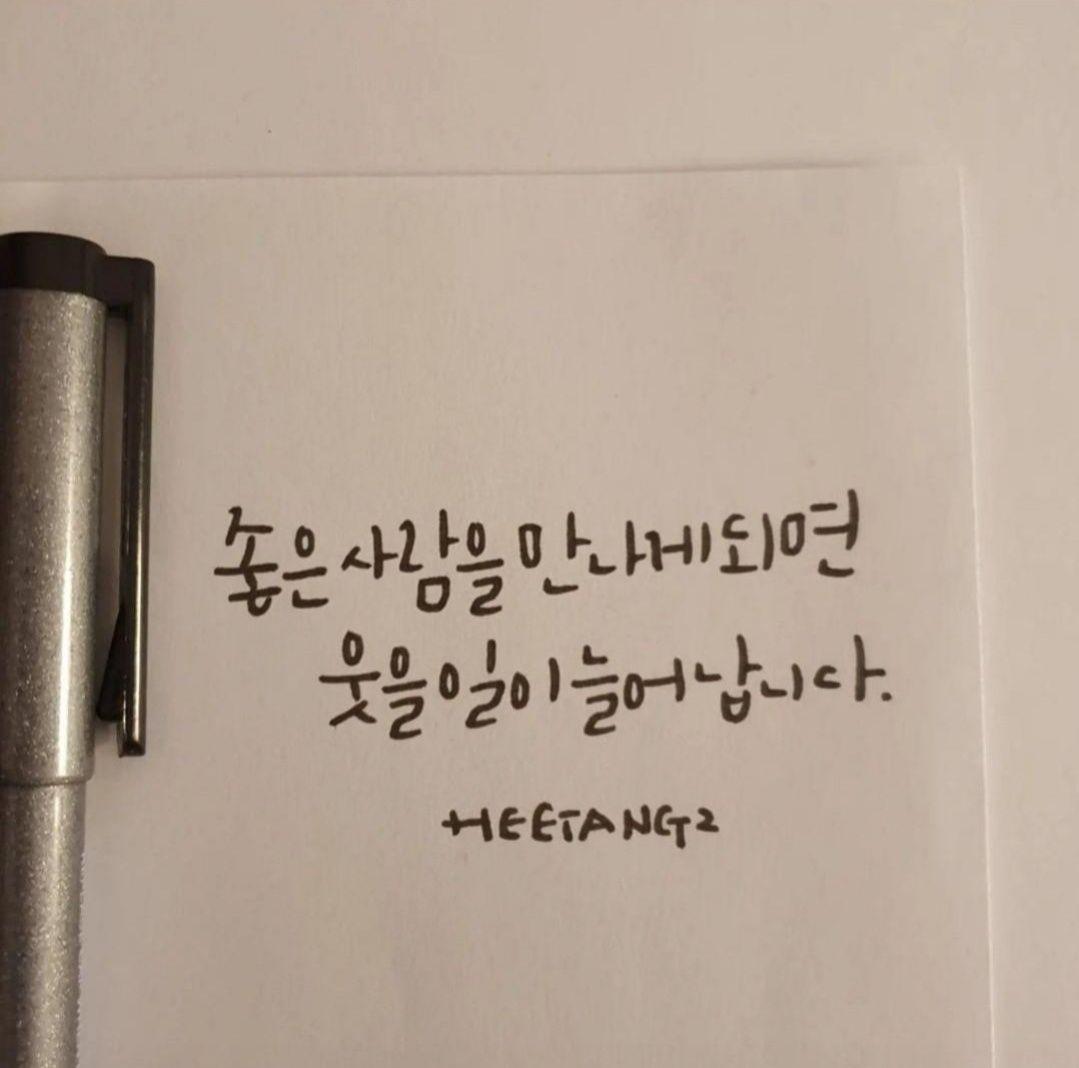 좋은 사람을 만나게되면
웃을 일이 늘어납니다.
HEETANG2